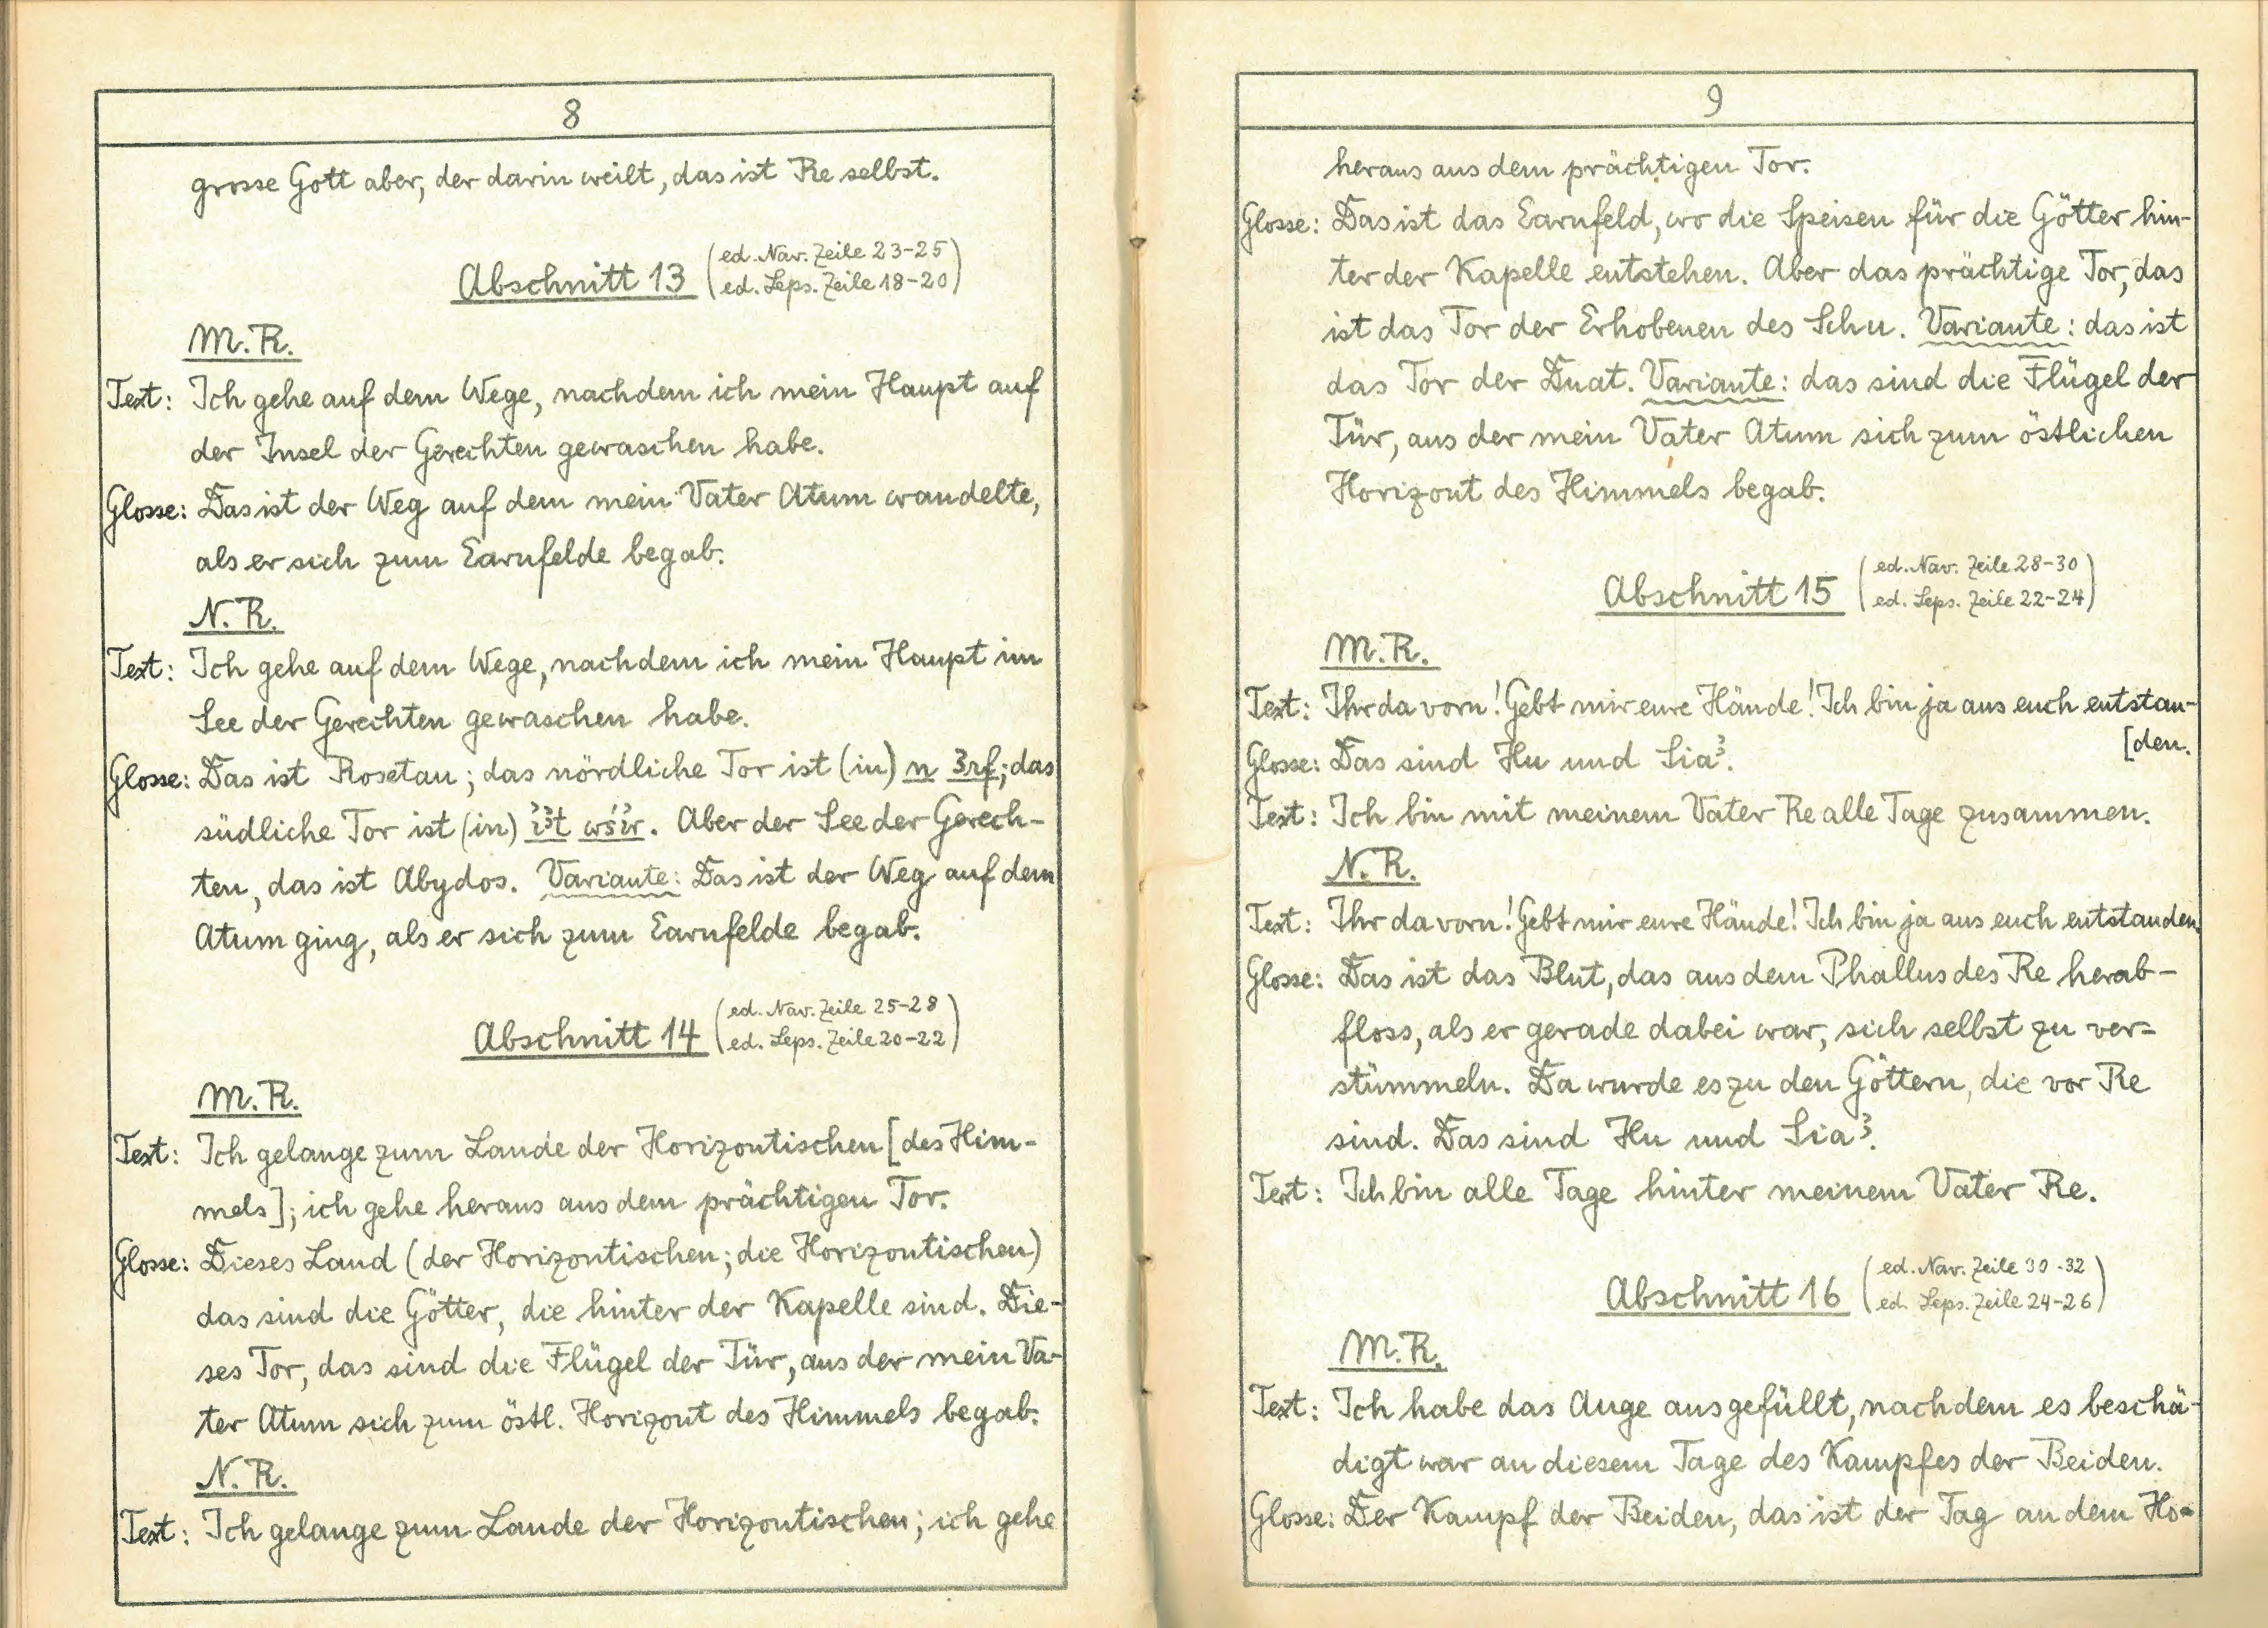 8
grosse Gott aber, der darin weilt, das ist Re selbst.
Abschnitt 13 (ed. Nav. Zeile 23-25
ed. Leps. Zeile 18-20)
M.R.
Text: Ich gehe auf dem Wege, nachdem ich mein Haupt auf
der Insel der Gerechten gewaschen habe.
Glosse: Das ist der Weg auf dem mein Vater Atum wandelte,
als er sich zum Earufelde begab.
N.R.
Text: Ich gehe auf dem Wege, nachdem ich mein Haupt im
See der Gerechten gewaschen habe.
Glosse: Das ist Rosetau; das nördliche Tor ist (in) n ꜣrf; das
südliche Tor ist (in) iꜣt wśir. Aber der See der Gerech-
ten, das ist Abydos. Variante: Das ist der Weg auf dem
Atum ging, als er sich zum Earufelde begab.
Abschnitt 14 (ed. Nav. Zeile 25-28
ed. Leps. Zeile 20-22)
M.R.
Text: Ich gelange zum Lande der Horizontischen [des Him-
mels]; ich gehe heraus aus dem prächtigen Tor.
Glosse: Dieses Land (der Horizontischen; die Horizontischen)
das sind die Götter, die hinter der Kapelle sind. Die-
ses Tor, das sind die Flügel der Tür, aus der mein Va-
ter Atum sich zum östl. Horizont des Himmels begab.
N.R.
Text: Ich gelange zum Lande der Horizontischen; ich gehe
9
heraus aus dem prächtigen Tor.
Glosse: Das ist das Earufeld, wo die Speisen für die Götter hin-
ter der Kapelle entstehen. Aber das prächtige Tor, das
ist das Tor der Erhobenen des Schu. Variante: das ist
das Tor der Duat. Variante: das sind die Flügel der
Tür, aus der mein Vater Atum sich zum östlichen
Horizont des Himmels begab.
Abschnitt 15 (ed. Nav. Zeile 28-30
ed. Leps. Zeile 22-24)
M.R.
Text: Ihr da vorn! Gebt mir eure Hände! Ich bin ja aus euch entstan-
[den.
Glosse: Das sind Hu und Siaꜣ.
Text: Ich bin mit meinem Vater Re alle Tage zusammen.
N.R.
Text: Ihr da vorn! Gebt mir eure Hände! Ich bin ja aus euch entstanden.
Glosse: Das ist das Blut, das aus dem Phallus des Re herab-
floss, als er gerade dabei war, sich selbst zu ver-
stümmeln. Da wurde es zu den Göttern, die vor Re
sind. Das sind Hu und Siaꜣ.
Text: Ich bin alle Tage hinter meinem Vater Re.
Abschnitt 16 (ed. Nav. Zeile 30-32
ed. Leps. Zeile 24-26)
M.R.
Text: Ich habe das Auge ausgefüllt, nachdem es beschä-
digt war an diesem Tage des Kampfes der Beiden.
Glosse: Der Kampf der Beiden, das ist der Tag an dem Ho-